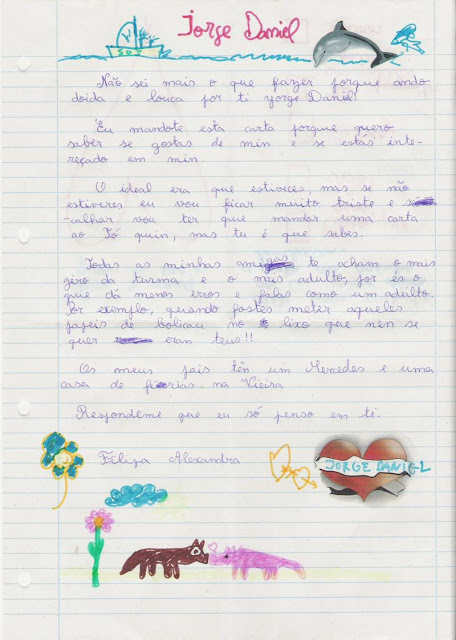 Jorge Daniel
SOS
Não sei mais o que fazer porque ando
doida e louca por ti Yorge Daniel!
Eu mandote esta carta porque quero
saber se gostas de min e se estás inte-
reçado em min.
O ideal era que estiveces, mas se não
estiveres eu vou ficar muito triste e se
-calhar vou ter que mandar uma carta
ao Tó quin, mas tu é que sabes.
Todas as minhas amigas te acham o mais
giro da turma e o mais adulto, por és o
que dá menos erros e falas como um adulto.
Por exemplo, quando fostes meter aqueles
papeis de bolicau no lixo que nen se
quer eran teus!!
Os meus pais têm um Mercedes e uma
casa de férias na Vieira
Respondeme que eu só penso em ti.
Filipa Alexandra
JORGE DANIEL